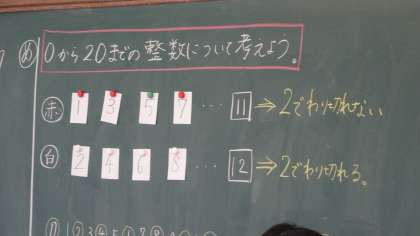 め 0から20までの整数について考えよう。
赤 1 3 5 7 ‥ 11 ⇒ 2でわり切れない
白 2 4 6 8 ‥ 12 ⇒ 2でわり切れる。